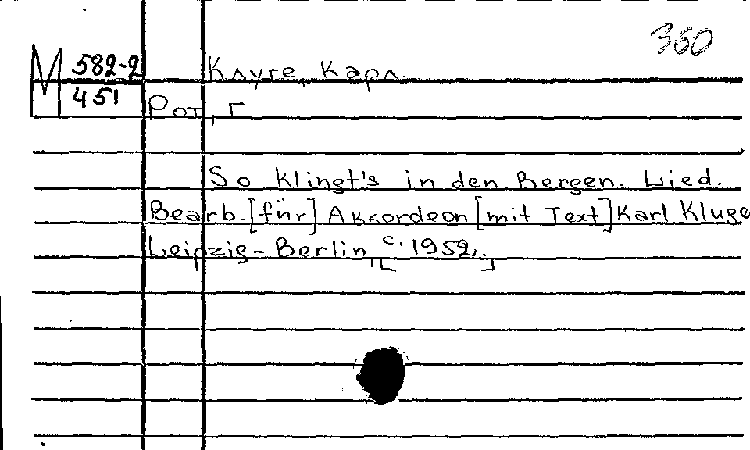 360
М 582-2 Клуге, Карл.
451 Рот, Г
So klingt's in den Bergen. Lied.
Bearb. [für] Akkordeon [mit Text] Karl Kluge
Leipzig-Berlin, [c. 1952.]